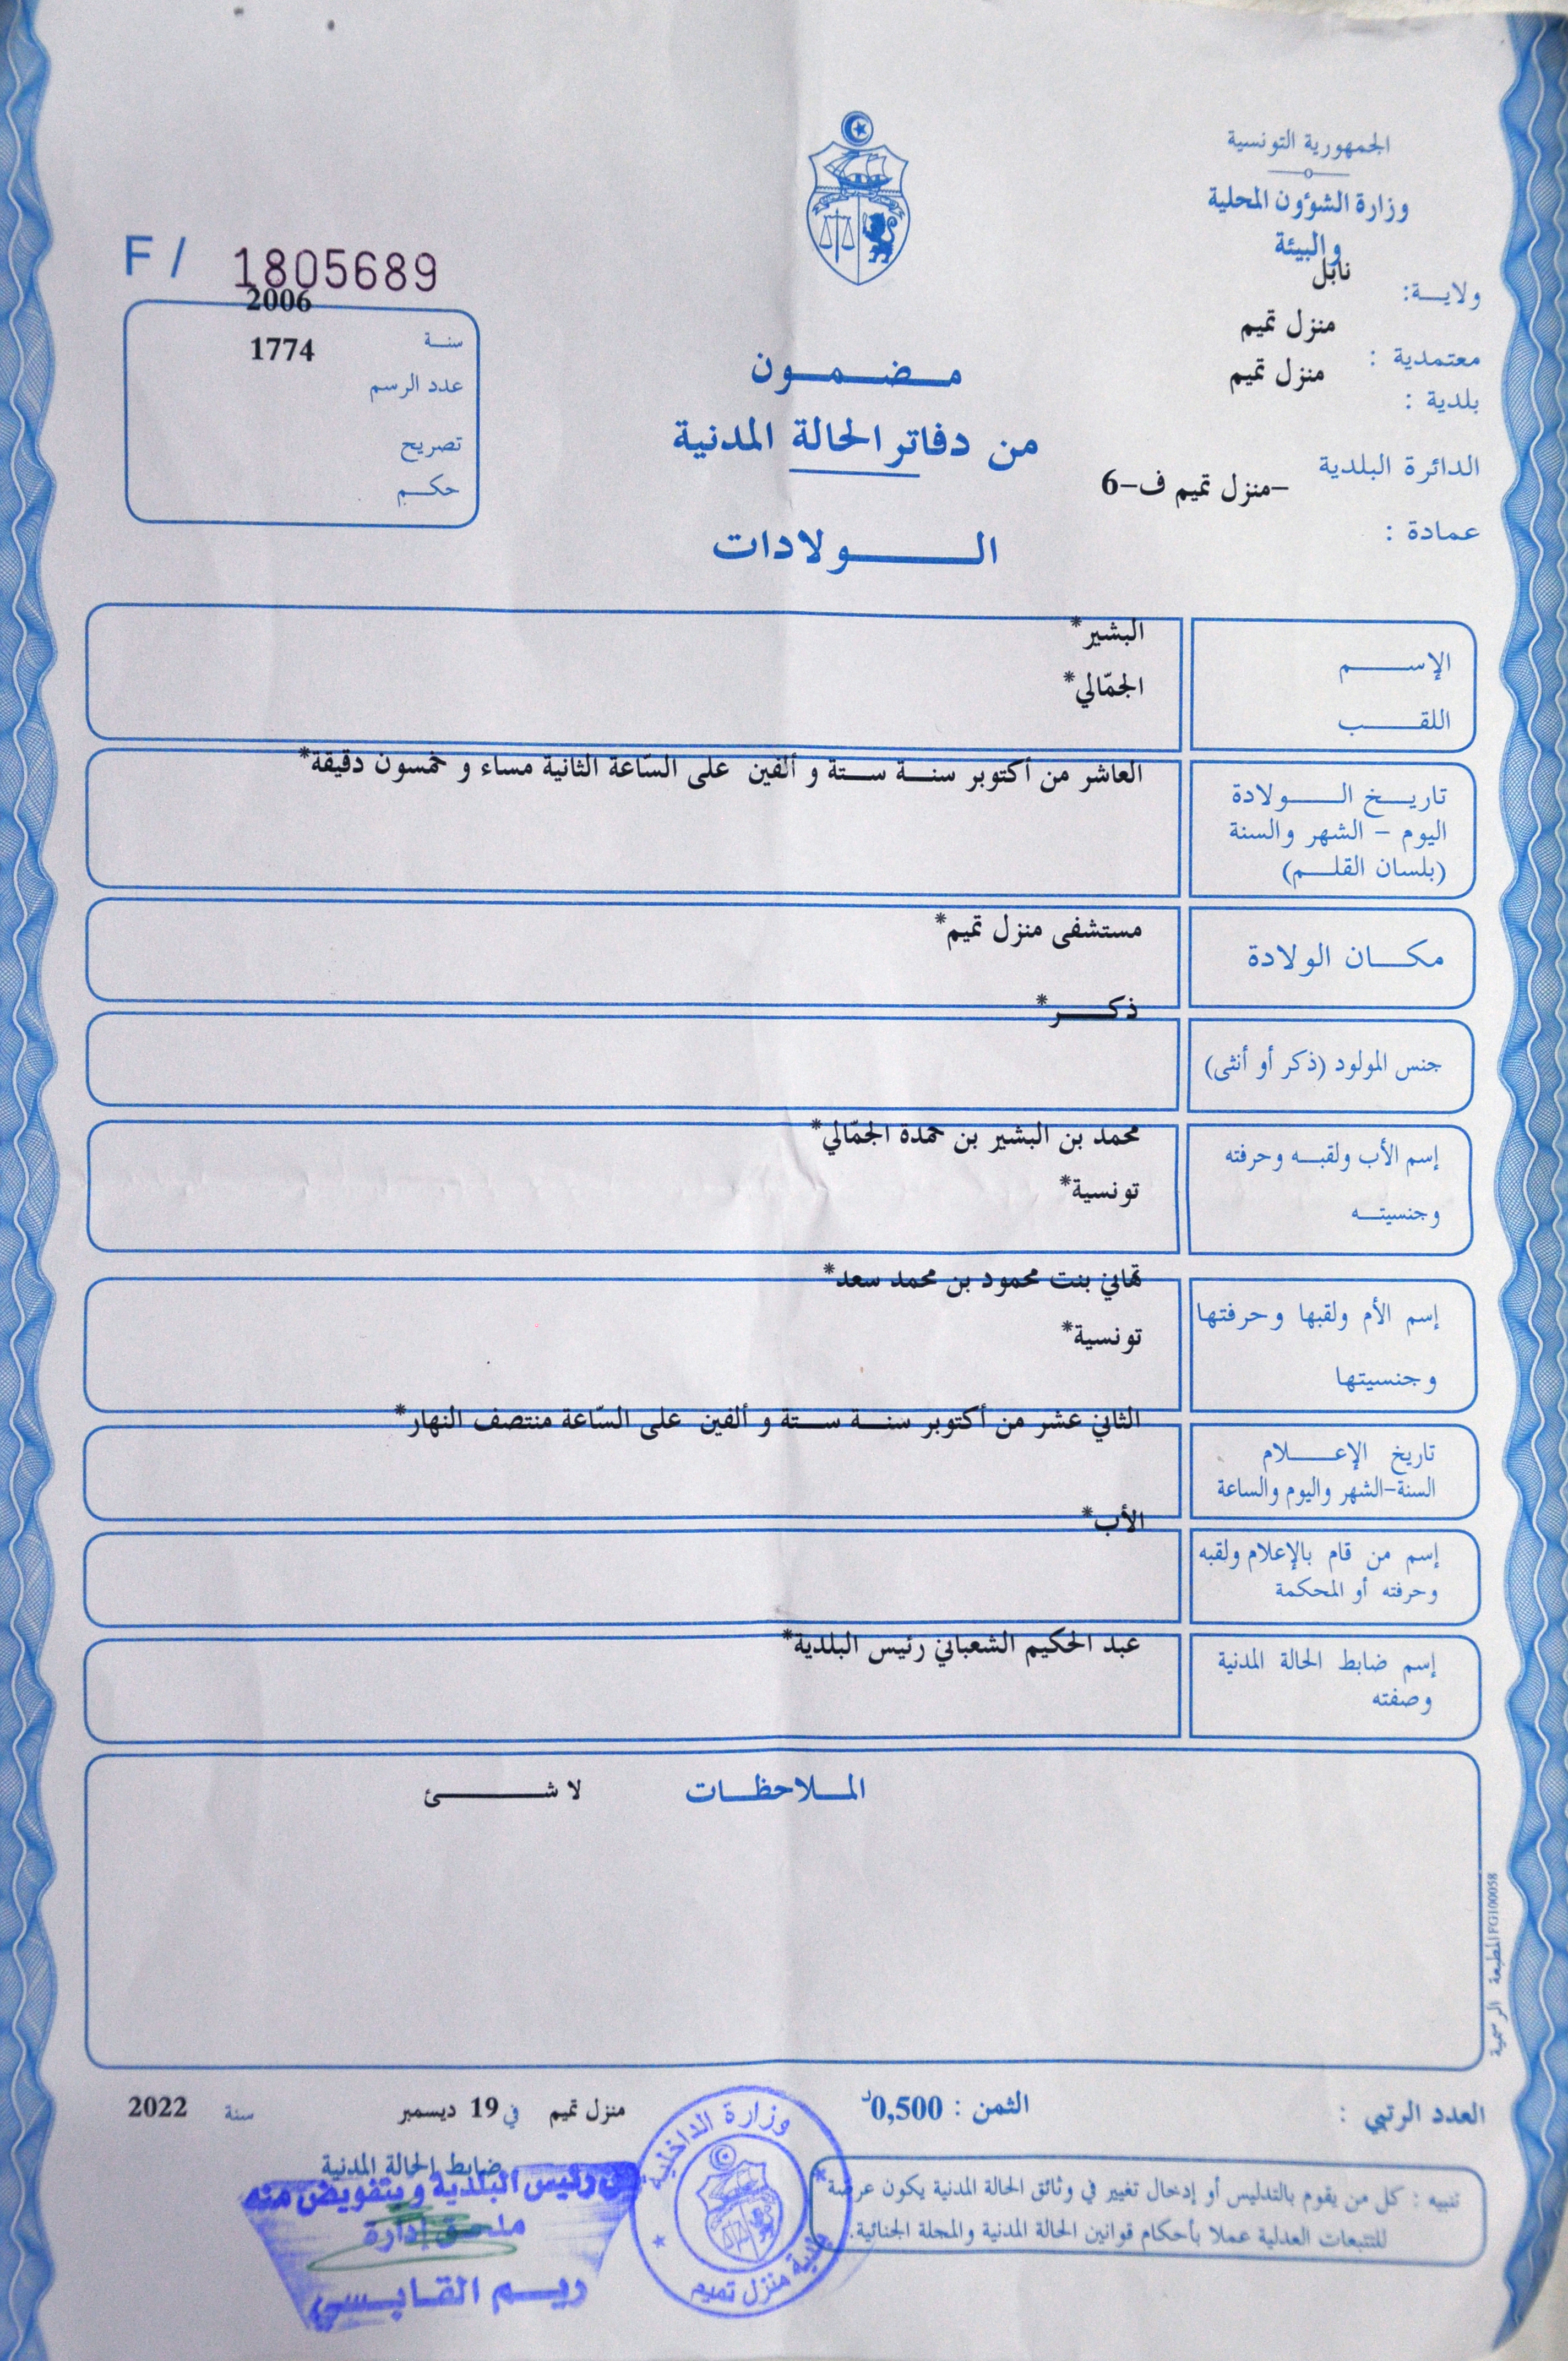 الجمهورية التونسية
وزارة الشؤون المحلية
والبيئة
ولايـــة: نابل
معتمدية : منزل تميم
بلدية : منزل تميم
الدائرة البلدية -منزل تميم ف-6
عمادة :
F / 1805689
سنــة 2006
عدد الرسم 1774
تصريح
حكــم
مـــضـــمـــون
من دفاتر الحالة المدنية
الــــــولادات
الإســـــم البشير*
اللقـــــب الجمّالي*
تاريـــخ الـــــولادة العاشر من أكتوبر سنـــة ستــة و ألفين على السّاعة الثانية مساء و خمسون دقيقة*
اليوم - الشهر والسنة
(بلسان القلـــم)
مكـــان الولادة مستشفى منزل تميم*
جنس المولود (ذكر أو أنثى) ذكـــــر*
إسم الأب ولقبـــه وحرفته محمد بن البشير بن حمدة الجمّالي*
وجنسيتـــه تونسية*
إسم الأم ولقبها وحرفتها تهاني بنت محمود بن محمد سعد*
وجنسيتها تونسية*
تاريخ الإعـــــلام الثاني عشر من أكتوبر سنـــة ستــة و ألفين على السّاعة منتصف النهار*
السنة-الشهر واليوم والساعة
إسم من قام بالإعلام ولقبه الأب*
وحرفته أو المحكمة
إسم ضابط الحالة المدنية عبد الحكيم الشعباني رئيس البلدية*
وصفته
الملاحظـــات لا شـــــــئ
المطبعة الرسمية FG100058
العدد الرتبي :
الثمن : 0,500د
منزل تميم في 19 ديسمبر سنة 2022
ضابط الحالة المدنية
عن رئيس البلدية وبتفويض منه
ملحق إدارة
ريـــم القـــابـــسي
وزارة الداخلية
بلدية منزل تميم
تنبيه : كل من يقوم بالتدليس أو إدخال تغيير في وثائق الحالة المدنية يكون عرضة
للتتبعات العدلية عملا بأحكام قوانين الحالة المدنية والمجلة الجنائية.